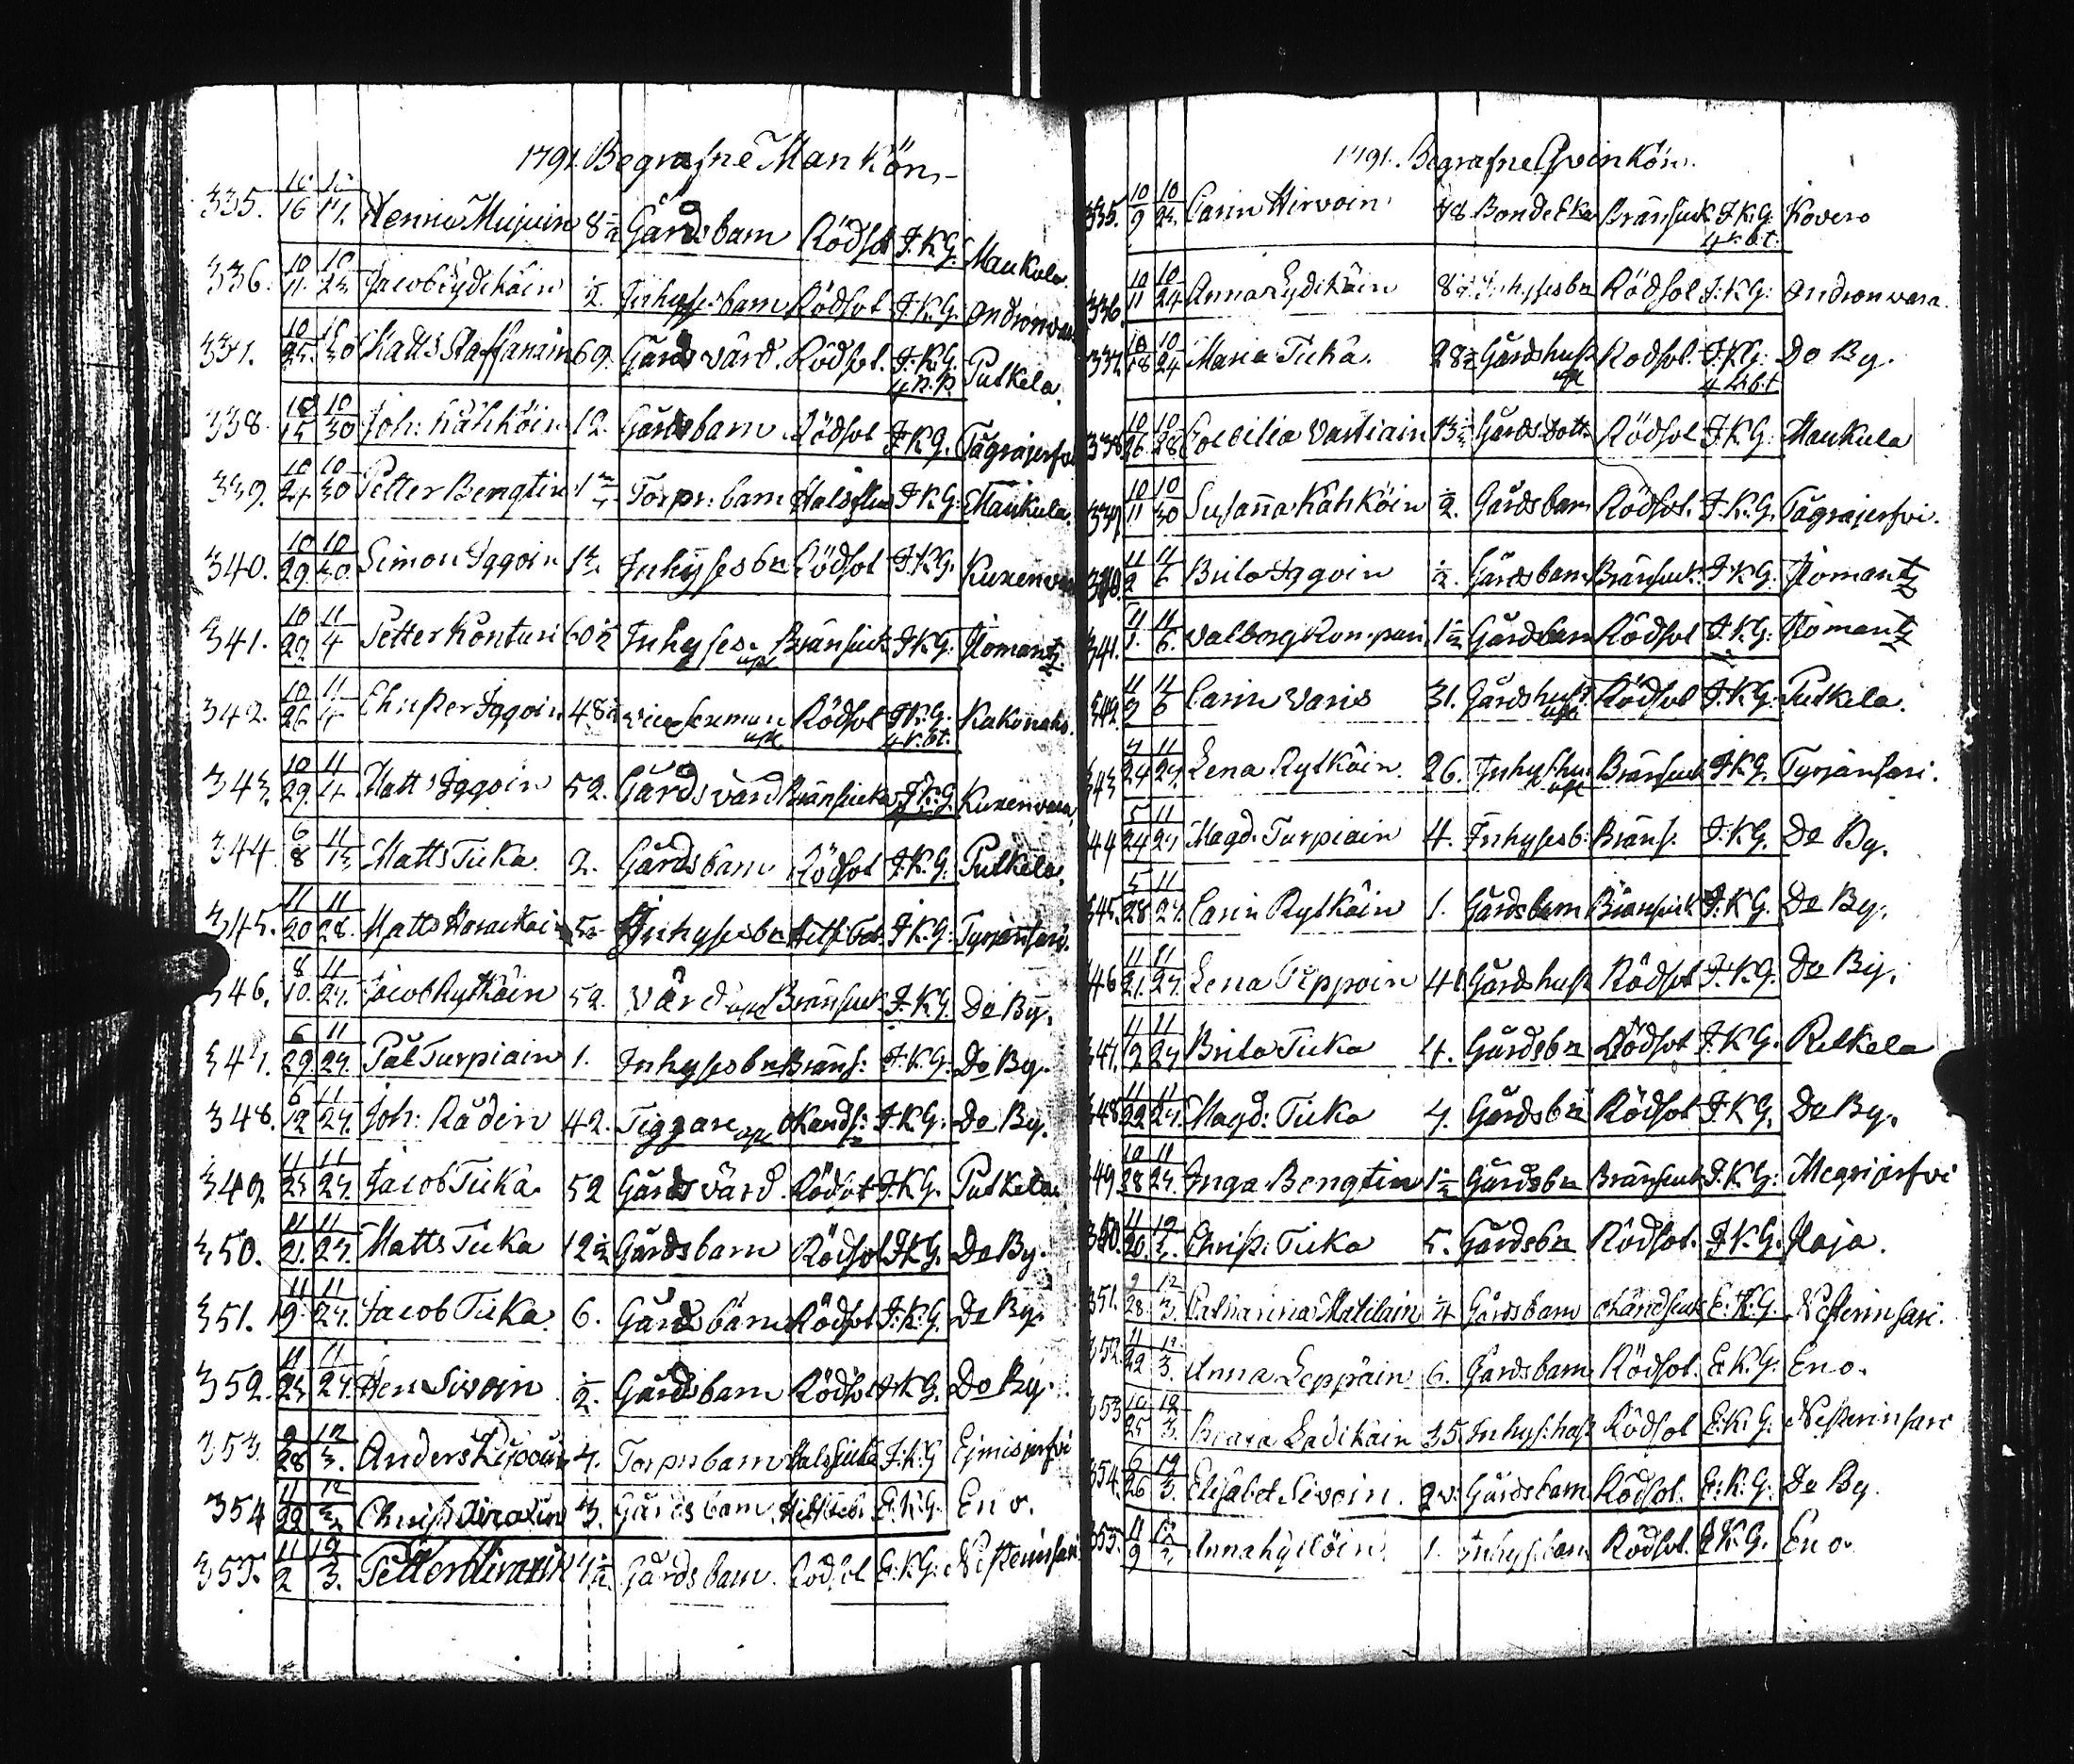 1791. Begrafne Mankön
335. 10/16 10/17. Henric Mujuin 8 1/2 Gårdsbarn Rödsot J.K.G. Maukula.
336. 10/11. 10/23. Jacob Lydikäin 1/2. Inhysesbarn Rödsot J.K.G. Ondronvara
337. 10/25. 10/30 Matts Staffanain 69. Gårdsvärd. Rödsot. J.K.G. Putkela.
338. 10/15 10/30 Joh: Kähköin 12. Gårdsbarn Rödsot J.K.G. Tågrajerfvi
339. 10/24 10/30 Petter Bengtin Torp: barn Halssjuk J.K.G. Maukula.
340. 10/29. 10/30. Simon Iggoin Inhysesbn Rödsot J.K.G. Kuxenvara
341. 10/29. 11/4 Petter Konturi 60 1/2 Inhyses. Bränsiuk J.K.G. Ilomantz
342. 10/26 11/4 Christer Iggoin 48 1/2 vice sexman Rödsot J.K.G. 4 r.bt. Kakonaho.
343. 10/29. 11/4. Matts Iggoin 52. Gårdsvärd Bränsiuka J.K.G. Kuxenvara.
344. 6/8 11/13 Matts Tuka. 2. Gårdsbarn Rödsot J.K.G. Putkela.
345. 11/20 11/28. Matts Inhysesbn J.K.G. Tyrjänsari.
346. 8/10. 11/27. Jacob Rytkäin 52. Värd Bränsiuk J.K.G. Do By.
347. 6/29. 11/27. Pål Turpiain 1. Inhysesbn Bräns: J.K.G. Do By.
348. 6/12 11/27. Joh: Rädin 42. Tiggare J.K.G. Do By.
349. 11/23 11/27. Jacob Tuka 52 Gårdsvärd. Rödsot J.K.G. Putkela
350. 11/21. 11/27. Matts Tuka 12 1/2 Gårdsbarn Rödsot J.K.G. Do By.
351. 11/19. 11/27. Jacob Tuka. 6. Gårdsbarn Rödsot J.K.G. Do By.
352. 11/23 11/27. Hen Sivoin 1/2. Gårdsbarn Rödsot J.K.G. Do By.
353. 9/28 12/3. Anders 4. Torprsbarn Halssiuka J.K.G. Ejmisjerfvi
354 11/22 12/3 Christ: 3. Gårdsbarn. E.K.G. Eno.
355. 11/2 12/3. Petter Gårdsbarn. Rödsot E.K.G. Nesterinsari
1791. Begrafne Qvinkön.
335. 10/9 10/23. Carin Hirvoin 78 Bonde Enka Bränsiuk J.K.G. 4 r.bt. Kovero
336. 10/11 10/24 Anna Lydikäin Inhysesbn Rödsot J.K.G. Ondronvara.
337. 10/18 10/24 Maria Tuka. 28 1/2 Gårdshust Rödsot. J.K.G. Do By.
338. 10/26 10/28 Coecilia Vastiain 13 1/2 Gårds. Dott. Rödsot J.K.G. Maukula
339. 10/11 10/30 Susanna Kähköin 1/2. Gårdsbarn Rödsot. J.K.G. Tågrajerfvi.
340. 11/2 11/6 Brita Iggoin 1/2. Gårdsbarn Bränsiuk. J.K.G. Ilomantz
341. 11/1. 11/6. Valborg Romppain 1 1/2 Gårdsbarn Rödsot J.K.G. Ilomantz
342. 11/3 11/6 Carin Varis 31. Gårdshust. Rödsot J.K.G. Putkela.
343 4/24 11/27. Lena Rytkäin. 26. Inhyshu Bränsiuk J.K.G. Tyrjänsari.
344 5/24 11/27 Magd. Turpiain 4. Inhysesb: Bräns. J.K.G. Do By.
345. 5/28 11/27. Carin Rytkäin 1. Gårdsbarn Bränsiuk J.K.G. Do By.
346 11/21. 11/27. Lena Teppoin 41 Gårdshust Rödsot J.K.G. Do By.
347. 11/2 11/27 Brita Tuka 4. Gårdsbn Rödsot J.K.G. Putkela
348. 11/22 11/27. Magd: Tuka 7. Gårdsbn Rödsot J.K.G. Do By.
349. 10/28 11/27. Inga Bengtin 1 1/2 Gårdsbn Bränsiuk J.K.G. Megrijerfvi
350. 11/20. 12/3. Christ: Tuka 5. Gårdsbn Rödsot. J.K.G. Maja.
351. 9/28 12/3. Catharina Matilain Gårdsbarn E.K.G. Nesterinsari.
352. 11/22 12/3. Anna Leppäin 6. Gårdsbarn Rödsot. E.K.G. Eno.
353 10/25 12/3. Ladikäin 35 Inhys: hust Rödsot E.K.G. Nesterinsari
354. 6/26 12/3. Elisabet Sivoin. Gårdsbarn Rödsot. E.K.G. Do By.
355. 11/9 12/3. Anna Hyelöin 1. Inhysbarn Rödsot. E.K.G. Eno.